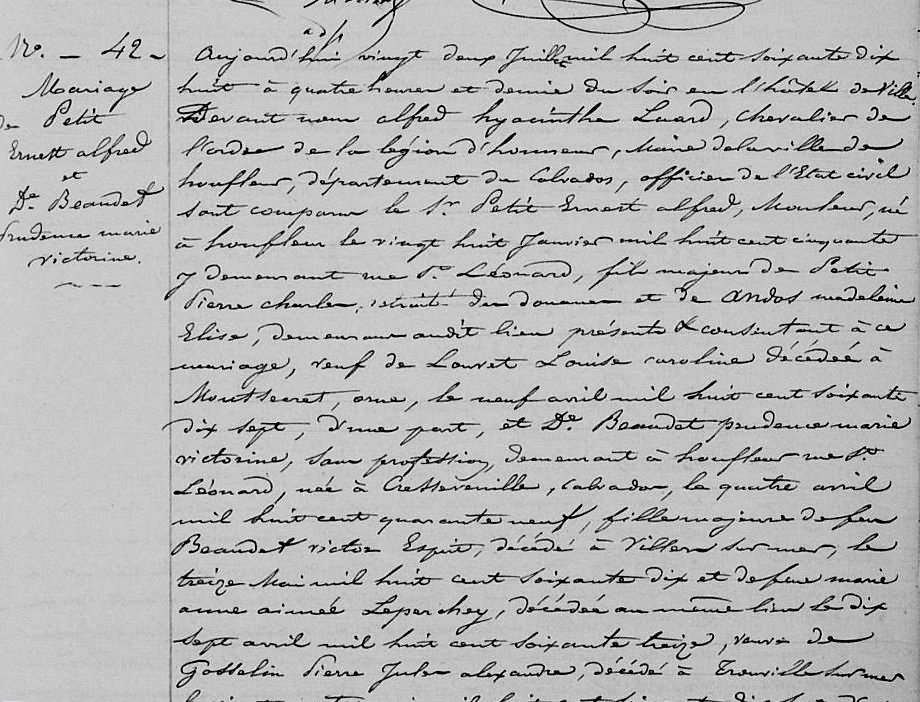 N°. - 42 -
Mariage
de Petit
Ernest alfred
et
De. Beaudet
Prudence marie
victorine.
Aujourd'hui vingt deux Juillet mil huit cent soixante dix
huit à quatre heures et demie du soir en l'hôtel de Ville
Devant nous alfred hyacinthe Luard, chevalier de
l'ordre de la légion d'honneur, Maire de la ville de
honfleur, département du Calvados, officier de l'Etat civil
sont comparus le Sr. Petit Ernest alfred, Mouleur, né
à honfleur le vingt huit Janvier mil huit cent cinquante
y demeurant rue St. Léonard, fils majeur de Petit
Pierre charles, retraité des douanes et de Andos madeleine
Elise, demeurant audit lieu présents & consentant à ce
mariage, veuf de Louvet Louise caroline décédée à
Montsecret, orne, le neuf avril mil huit cent soixante
dix sept, d'une part, et De. Beaudet prudence marie
victorine, sans profession, demeurant à honfleur rue St.
Léonard, née à Cresseveuille, calvados, le quatre avril
mil huit cent quarante neuf, fille majeure de feu
Beaudet victor Esprit, décédé à Villers sur mer, le
treize Mai mil huit cent soixante dix et de feue marie
anne aimée Leperchey, décédée au même lieu le dix
sept avril mil huit cent soixante treize, veuve de
Gosselin Pierre Jules alexandre, décédé à Trouville sur mer